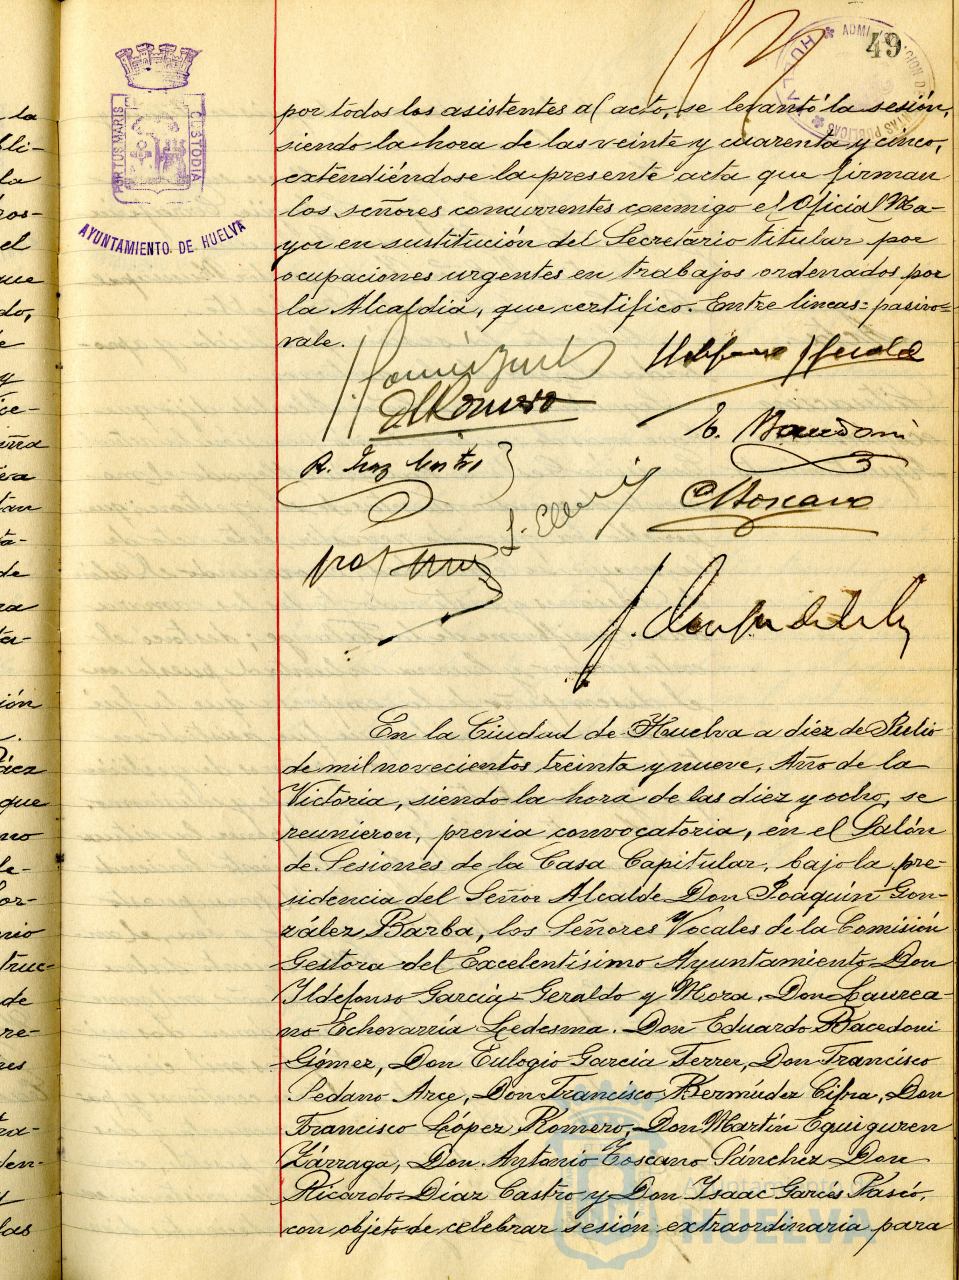 49
PORTUS MARIS
CUSTODIA
AYUNTAMIENTO DE HUELVA
por todos los asistentes al acto, se levantó la sesión,
siendo la hora de las veinte y cuarenta y cinco,
extendiéndose la presente acta que firman
los señores concurrentes conmigo el Oficial Ma-
yor en sustitución del Secretario titular por
ocupaciones urgentes en trabajos ordenados por
la Alcaldía, que certifico. Entre lineas = pasivo =
vale.
E. Bacedoni
R. Diaz Castro
A Toscano
En la Ciudad de Huelva a diez de Julio
de mil novecientos treinta y nueve, Año de la
Victoria, siendo la hora de las diez y ocho, se
reunieron, previa convocatoria, en el Salón
de Sesiones de la Casa Capitular, bajo la pre-
sidencia del Señor Alcalde Don Joaquín Gon-
zález Barba, los Señores Vocales de la Comisión
Gestora del Excelentísimo Ayuntamiento Don
Ildefonso García-Geraldo y Mora, Don Laurea-
no Echevarría Ledesma. Don Eduardo Bacedoni
Gómez, Don Eulogio García Ferrer, Don Francisco
Sedano Arce, Don Francisco Bermúdez Cifra, Don
Francisco López Romero, Don Martín Eguiguren
Zárraga, Don Antonio Toscano Sánchez Don
Ricardo Díaz Castro y Don Isaac Garcés Pascó,
con objeto de celebrar sesión extraordinaria para
Ayuntamiento de
HUELVA